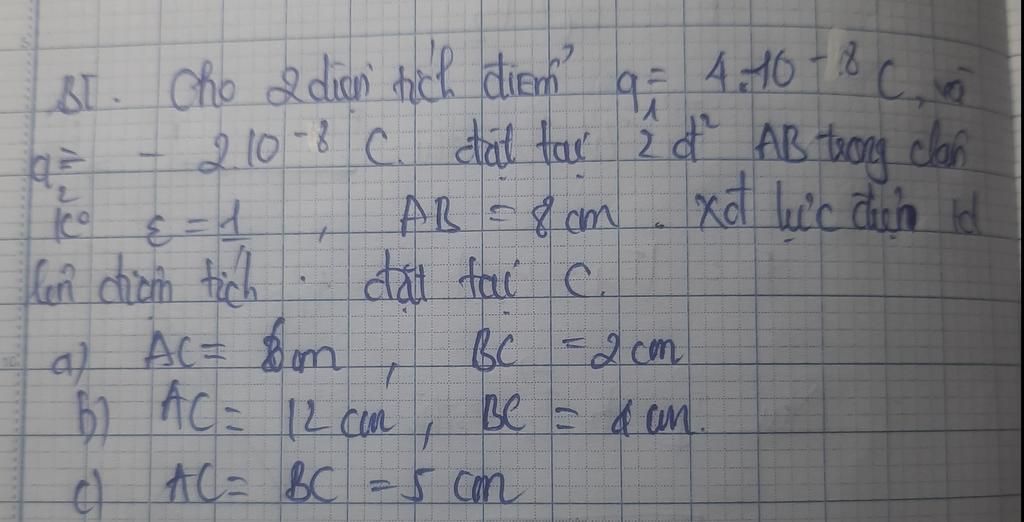 BT. Cho 2 điện tích điểm q₁ = 4.10⁻⁸ C, và
q₂ = - 2 10⁻⁸ C. đặt tại 2 đ² AB trong chân
ko ε = 1, AB = 8 cm. xđ lực điện td
lên điện tích . đặt tại C.
a) AC = 6 cm, BC = 2 cm
b) AC = 12 cm, BC = 4 cm.
c) AC = BC = 5 cm